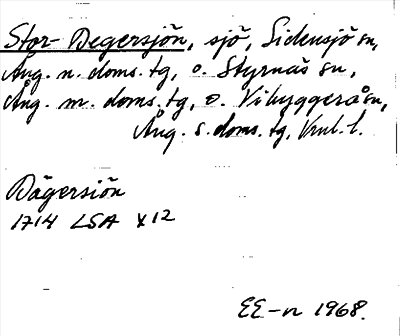 Stor-Degersjön, sjö, Sidensjö sn,
Ång. n. doms. tg, o. Styrnäs sn,
Ång. m. doms. tg, o. Vibyggerå sn,
Ång. s. doms. tg, Vnl. l.
Dägersiön
1714 LSA X12
EE-n 1968.